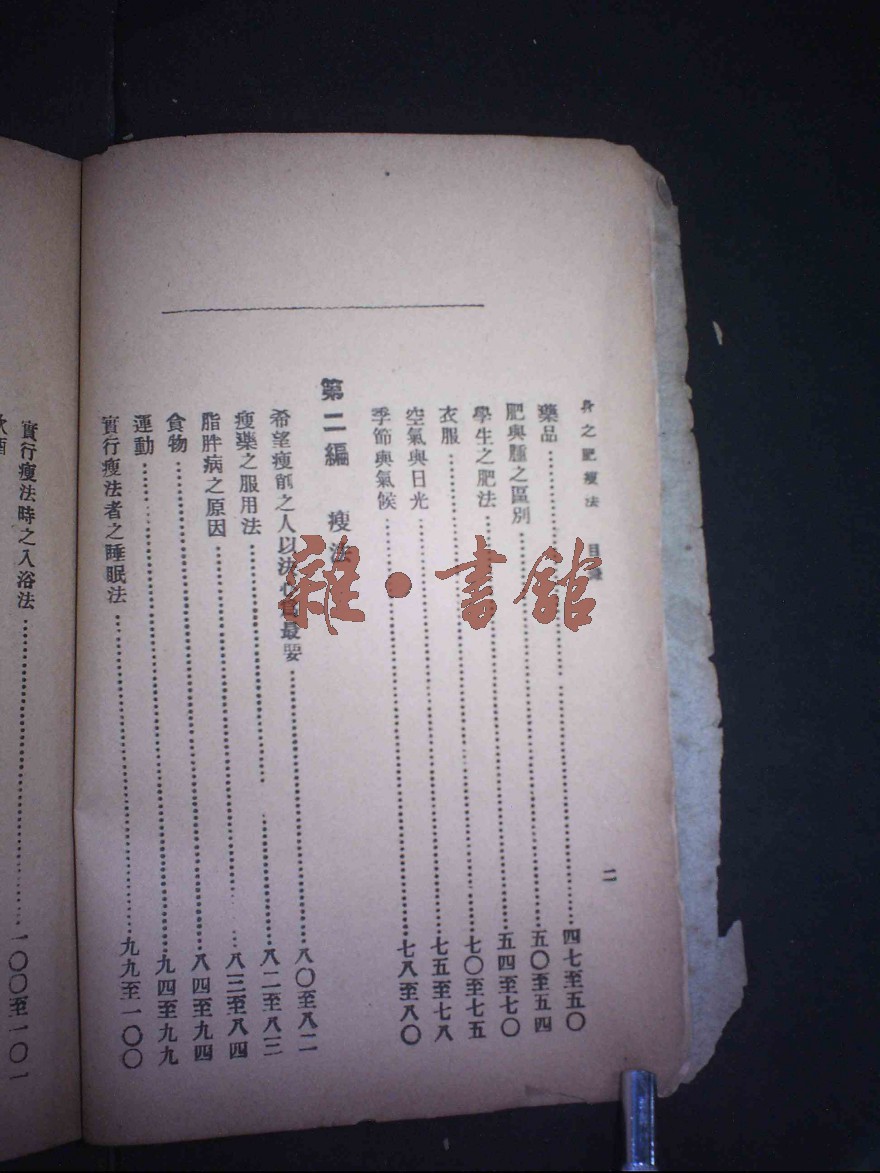 身之肥瘦法 目錄
二
藥品 四七至五〇
肥與腫之區別 五〇至五四
學生之肥法 五四至七〇
衣服 七〇至七五
空氣與日光 七五至七八
季節與氣候 七八至八〇
第二編 瘦法
希望瘦削之人以法心爲最要 八〇至八二
瘦藥之服用法 八二至八三
脂胖病之原因 八三至八四
食物 八四至九四
運動 九四至九九
實行瘦法者之睡眠法 九九至一〇〇
實行瘦法時之入浴法 一〇〇至一〇一
雜·書館